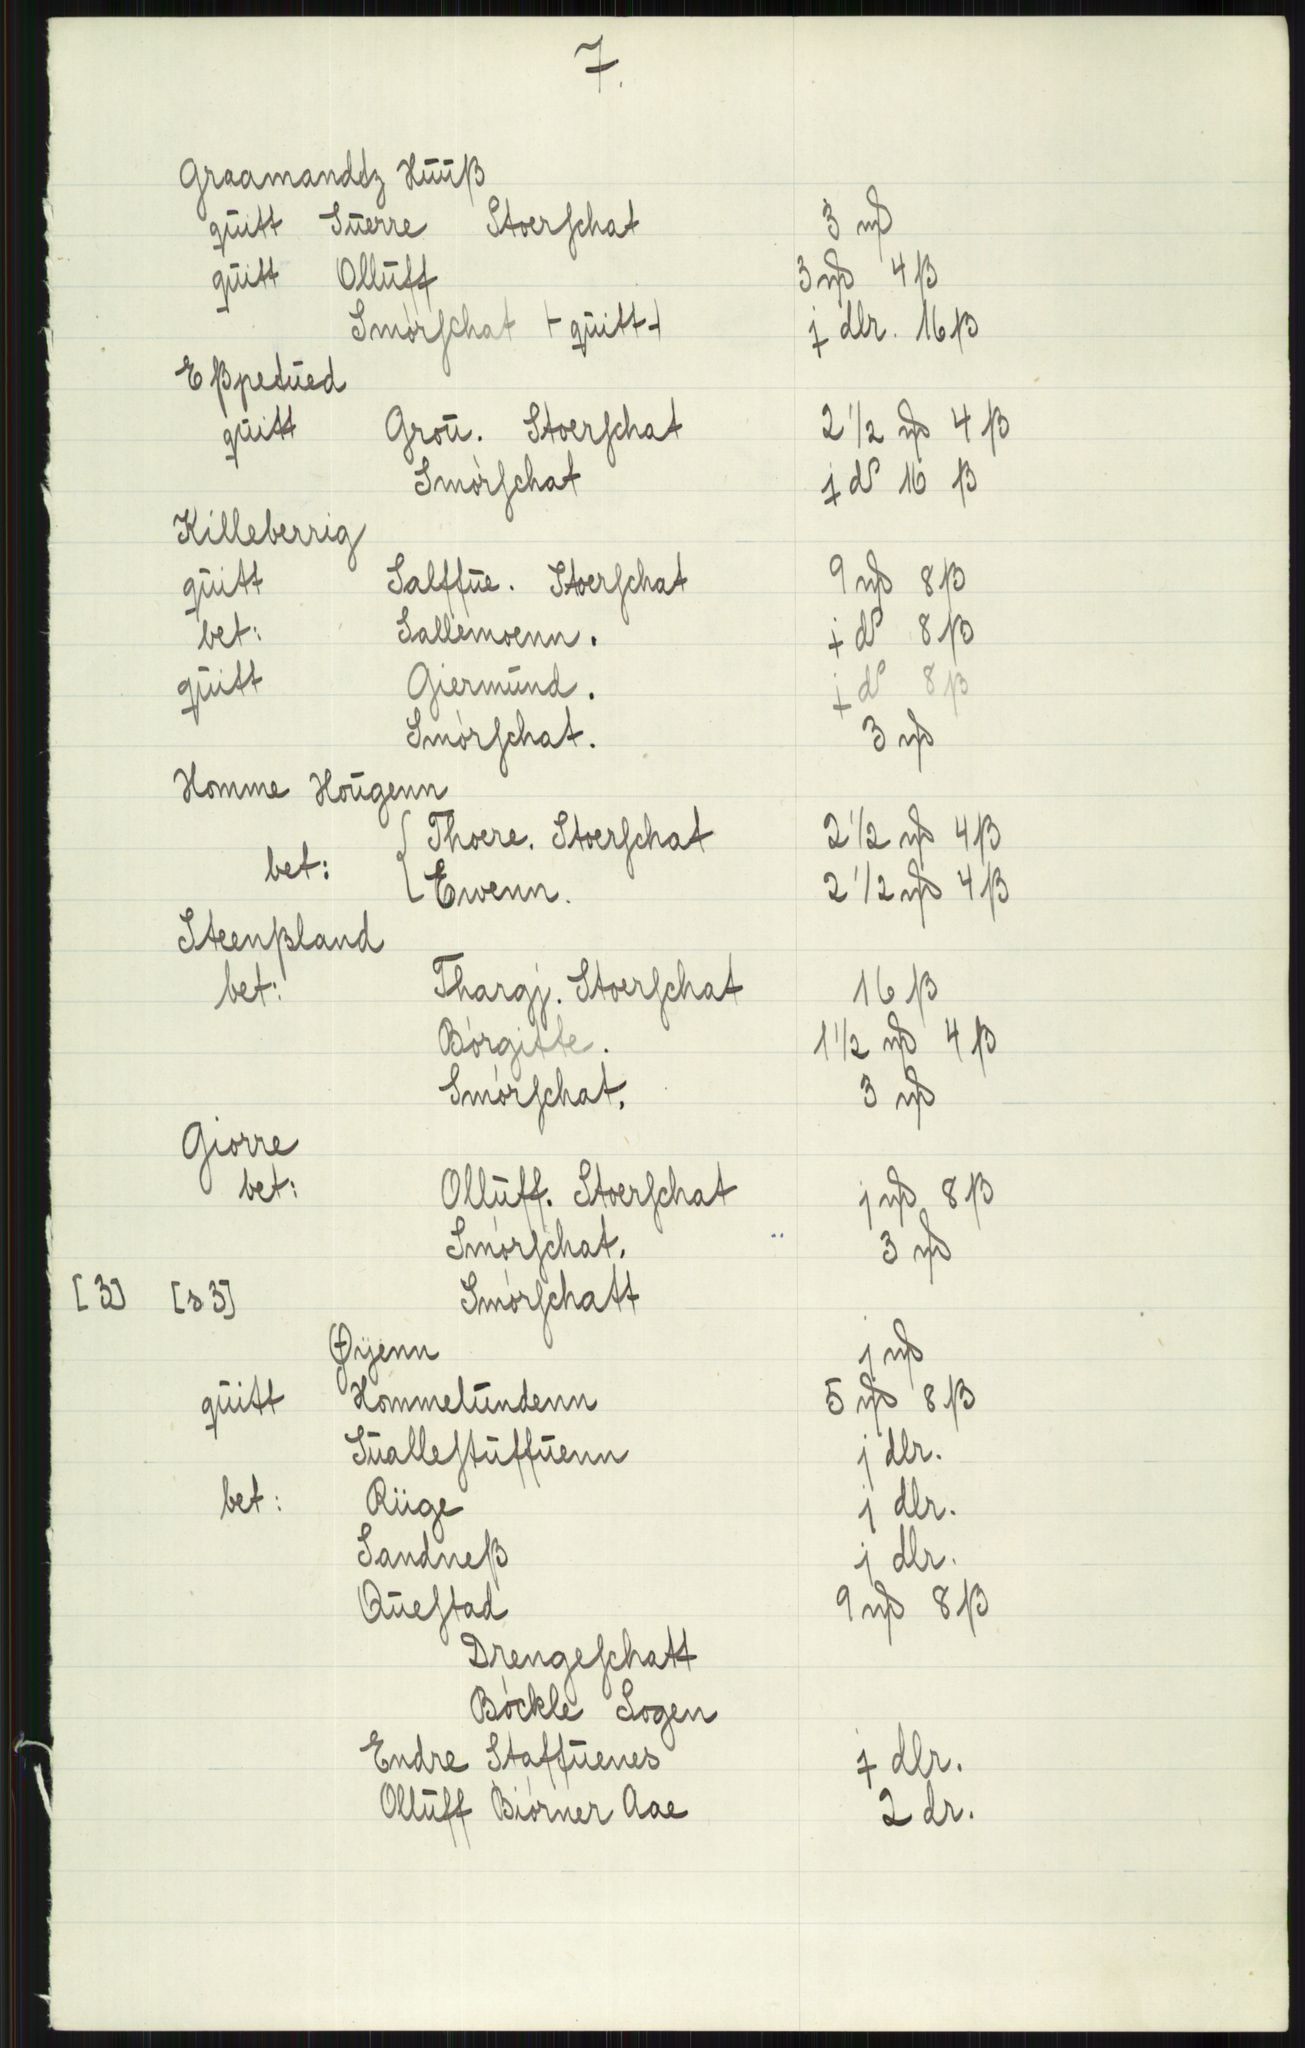 7.
Graamandtz Hūūß
qūitt Sūerre Stoerschat 3 mß
qūitt Ollūff 3 mß 4 ß
Smòrschat ⊢ qūitt ⊣ j dlr. 16 ß
Eßpetūed
qūitt Groū. Stoerschat 2 1/2 mß 4 ß
Smòrschat j d 16 ß
Killeberrig
qūitt Salffūe. Stoerschat 9 mß 8 ß
bet: Sallemoenn. j d 8 ß
qūitt Giermūnd. j d 8 ß
Smòrschat. 3 mß
Homme Hoūgenn
Thoere. Stoerschat 2 1/2 mß 4 ß
bet:
Ewenn. 2 1/2 mß 4 ß
Steenßland
bet: Thargj. Stoerschat 16 ß
Bòrgitte. 1 1/2 mß 4 ß
Smòrschat. 3 mß
Giorre
bet: Ollūff. Stoerschat j mß 8 ß
Smòrschat. 3 mß
[3] [s 3] Smòrschatt
Øÿenn j mß
qūitt Hommelūndenn 5 mß 8 ß
Sūallestūffūenn j dlr.
bet: Rüge j dlr.
Sandneß j dlr.
Qūestad 9 mß 8 ß
Drengeschatt
Bòckle Sogen
Endre Staffūenes j dlr.
Ollūff Biòrner Aae 2 dr.